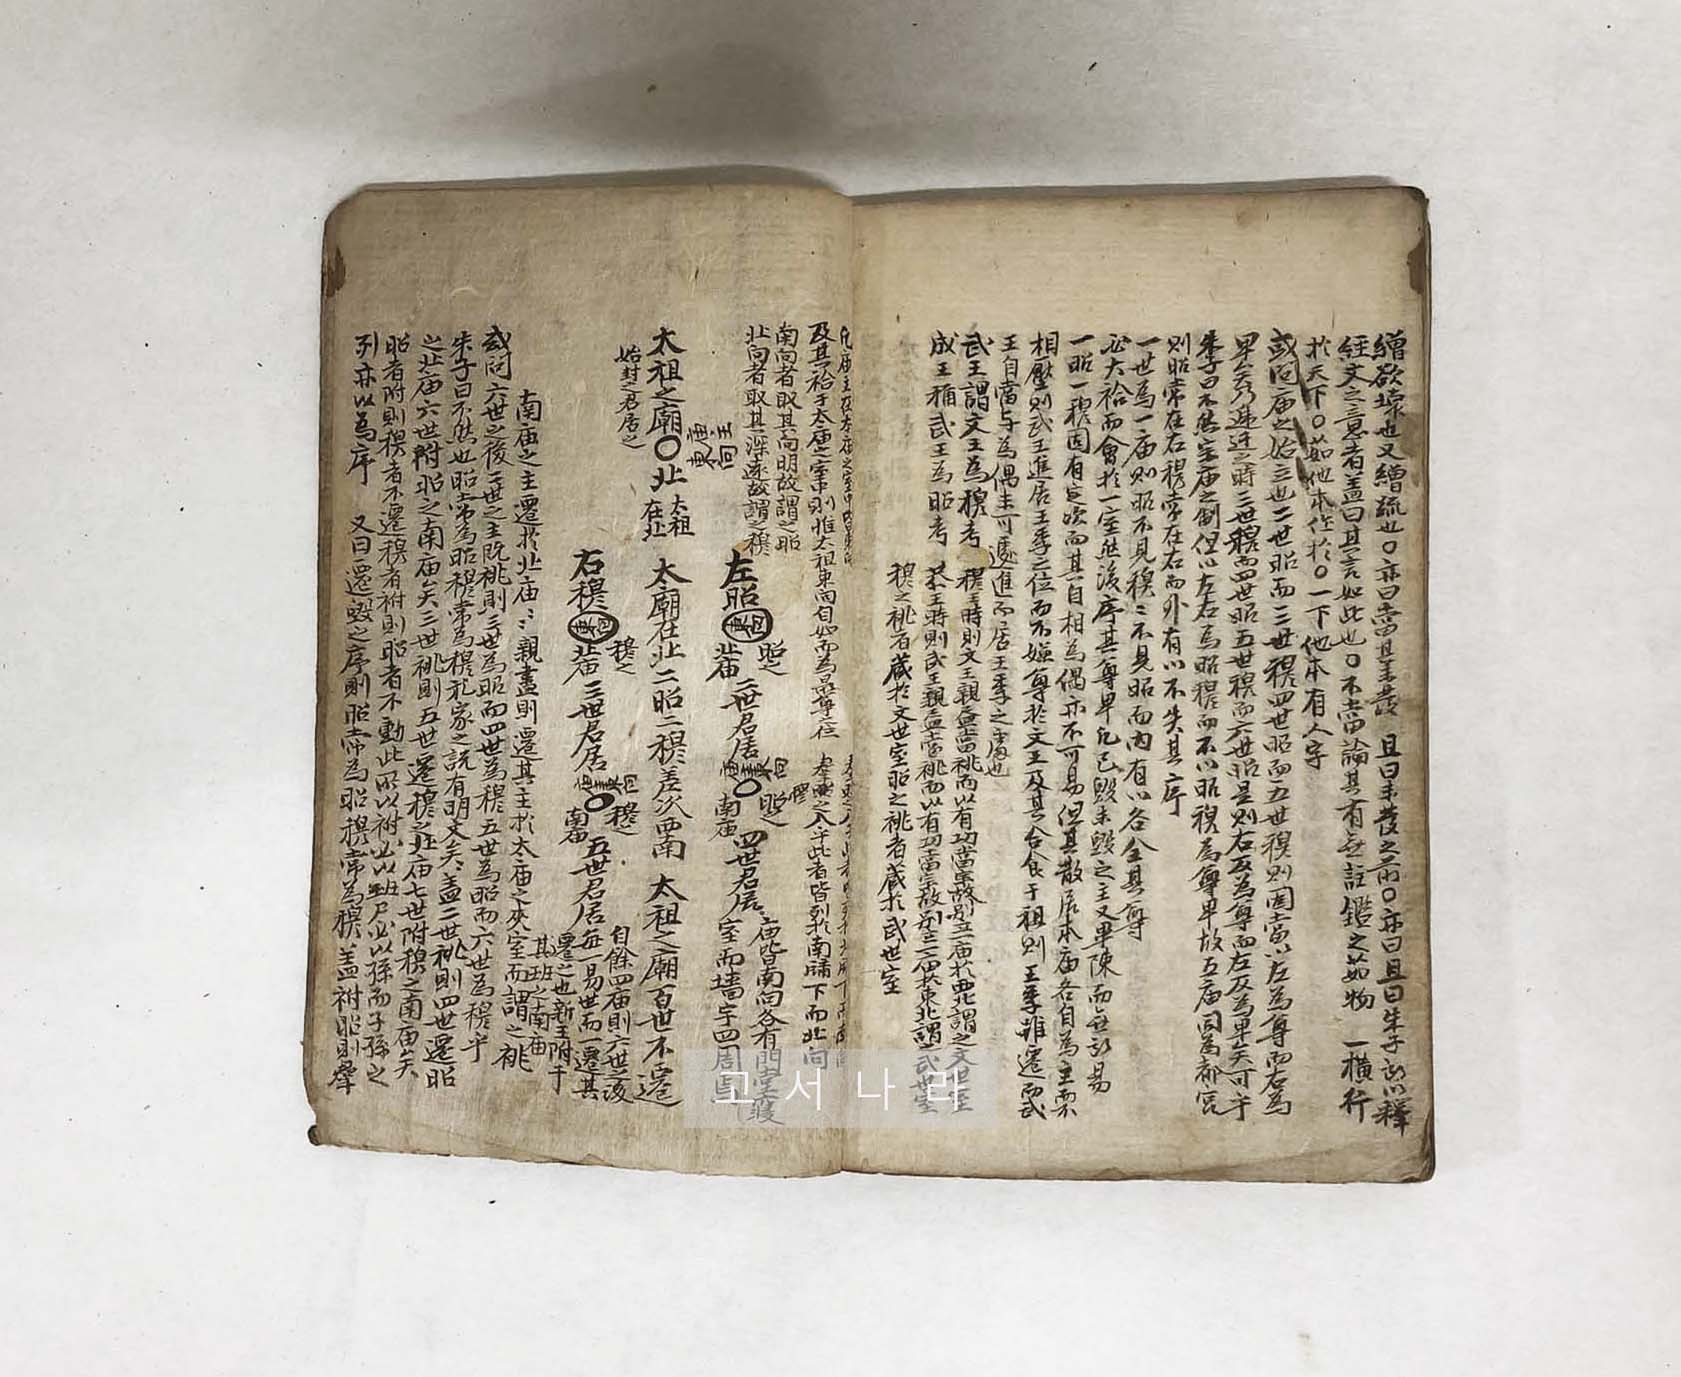 繒欲壞也又繒疏也〇亦曰當其未發 且曰未發之前〇亦曰且曰朱子所以釋
經文之意者盖曰其言如此也〇不當論其有無註鑑之茹物 一橫行
於天下〇茹他本作於〇一下他本有人字
或問庙之始立也二世昭而三世穆四世昭而五世穆則固當以左為尊而右為
卑矣乃遞迁之時三世穆而四世昭五世穆而六世昭是則右反為尊而左反為卑矣可乎
朱子曰不然宗庙之制但以左右為昭穆而不以昭穆為尊卑故五庙同為都宮
則昭常在左穆常在右而外有以不失其序
一世為一庙則昭不見穆穆不見昭而內有以各全其尊
必大祫而會於一室然後序其尊卑凡已毁未毁之主又畢陳而無所易
一昭一穆固有定次而其自相為偶亦不可易但其散居本庙各自為主而不
相壓則武王進居王季之位而不嫌尊於文王及其合食于祖則王季雖遷而武
王自當与為偶未可遽進而居王季之處也
武王謂文王為穆考 穆王時則文王親盡當祧而以有功當宗故別立一庙於西北謂之文世室
成王稱武王為昭考 共王時則武王親盡當祧而以有功當宗故別立一庙於東北謂之武世室
穆之祧者藏於文世室昭之祧者藏於武世室
及其祫于太庙之室中則惟太祖東向自如而為最尊之位 羣昭之入乎此者皆列於南牖下而北向
南向者取其向明故謂之昭
北向者取其深遠故謂之穆
左昭 北庙 昭之 二世君居 〇 南庙 昭之 四世君居 庙皆南向各有門堂寢室而墙宇四周焉
太祖之廟〇北 太祖在北 太廟在北二昭二穆差次而南 太祖之廟百世不遷
始封之君居之
右穆 北庙 穆之 三世君居 〇 南庙 穆之 五世君居 自餘四庙則六世之後每一易世而一遷其
遷之也新主附于其班之南庙
南庙之主遷於北庙北庙親盡則遷其主於太庙之夾室而謂之祧
或问六世之後二世之主既祧則三世為昭而四世為穆五世為昭而六世為穆乎
朱子曰不然也昭常為昭穆常為穆礼家之說有明文矣盖二世祧則四世遷昭
之北庙六世附昭之南庙矣三世祧則五世遷穆之北庙七世附穆之南庙矣
昭者附則穆者不遷穆者祔則昭者不動此所以祔必以班尸必以孫而子孫之
列亦以為序 又曰遷毀之序則昭常為昭穆常為穆盖祔昭則羣